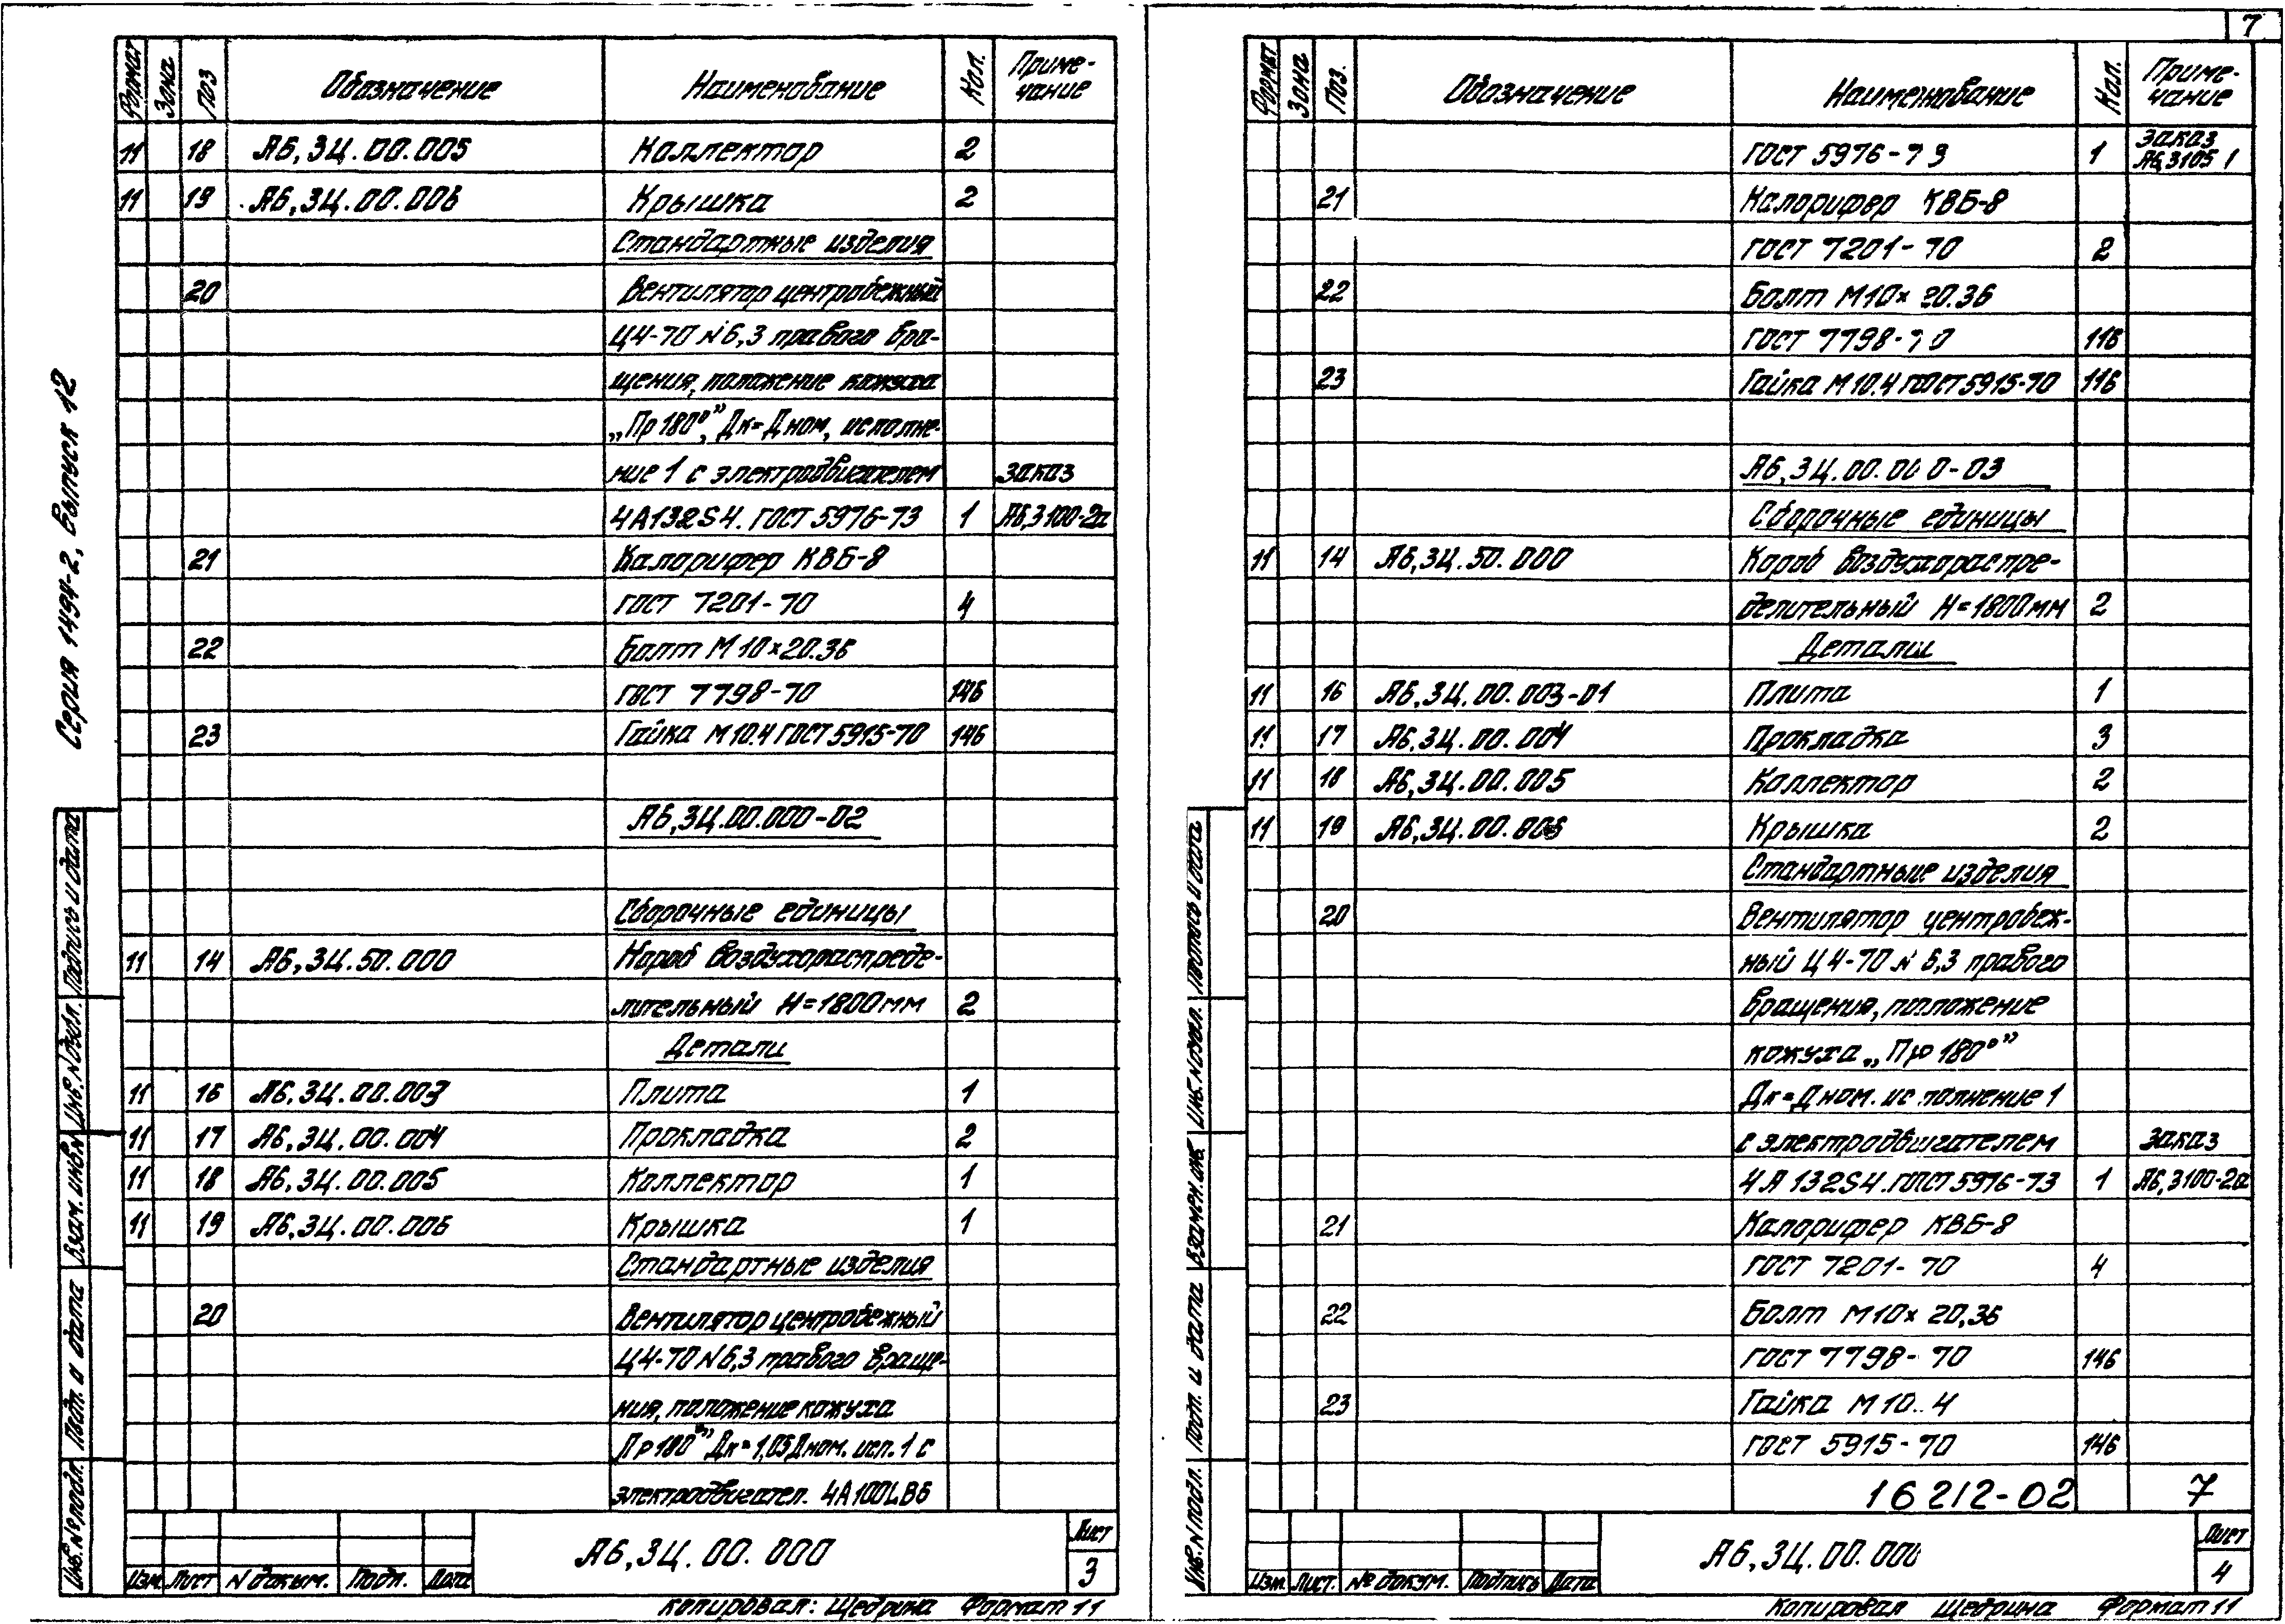 7
Серия 1494-2, Выпуск 12
Формат Зона Поз Обозначение Наименование Кол. Приме-
чание
11 18 А6,3Ц.00.005 Коллектор 2
11 19 А6,3Ц.00.006 Крышка 2
Стандартные изделия
20 Вентилятор центробежный
Ц4-70 N6,3 правого вра-
щения, положение кожуха
„Пр 180°”, Дк=Дном, исполне-
ние 1 с электродвигателем заказ
4А132S4. ГОСТ 5976-73 1 А6,3100-2а
21 Калорифер КВБ-8
ГОСТ 7201-70 4
22 Болт М10×20.36
ГОСТ 7798-70 146
23 Гайка М10.4 ГОСТ 5915-70 146
А6,3Ц.00.000-02
Сборочные единицы
11 14 А6,3Ц.50.000 Короб воздухораспреде-
лительный Н=1800мм 2
Детали
11 16 А6,3Ц.00.003 Плита 1
11 17 А6,3Ц.00.004 Прокладка 2
11 18 А6,3Ц.00.005 Коллектор 1
11 19 А6,3Ц.00.006 Крышка 1
Стандартные изделия
20 Вентилятор центробежный
Ц4-70 N6,3 правого враще-
ния, положение кожуха
Пр180°” Дк=1,05Дном. исп. 1 с
электродвигател. 4А100LB6
Подпись и дата
Инв. N дубл.
Взам. инв. N
Подп. и дата
Инв. № подл.
Изм. Лист N докум. Подп. Дата
А6,3Ц.00.000
Лист
3
Копировал: Щедрина Формат 11
Формат Зона Поз. Обозначение Наименование Кол. Приме-
чание
ГОСТ 5976-73 1 Заказ
А6,3105 1
21 Калорифер КВБ-8
ГОСТ 7201-70 2
22 Болт М10×20.36
ГОСТ 7798-70 116
23 Гайка М10.4 ГОСТ 5915-70 116
А6,3Ц.00.000-03
Сборочные единицы
11 14 А6,3Ц.50.000 Короб воздухораспре-
делительный Н=1800мм 2
Детали
11 16 А6,3Ц.00.003-01 Плита 1
11 17 А6,3Ц.00.004 Прокладка 3
11 18 А6,3Ц.00.005 Коллектор 2
11 19 А6,3Ц.00.006 Крышка 2
Стандартные изделия
20 Вентилятор центробеж-
ный Ц4-70 N 6,3 правого
вращения, положение
кожуха „Пр 180°”
Дк=Дном. исполнение 1
с электродвигателем Заказ
4А132S4. ГОСТ 5976-73 1 А6,3100-2а
21 Калорифер КВБ-8
ГОСТ 7201-70 4
22 Болт М10×20,36
ГОСТ 7798-70 146
23 Гайка М10.4
ГОСТ 5915-70 146
16212-02 7
Подпись и дата
Инв. N дубл.
Взамен. инв.
Подп. и дата
Инв. N подл.
Изм. Лист. № докум. Подпись Дата
А6,3Ц.00.000
Лист
4
Копировал Щедрина Формат 11